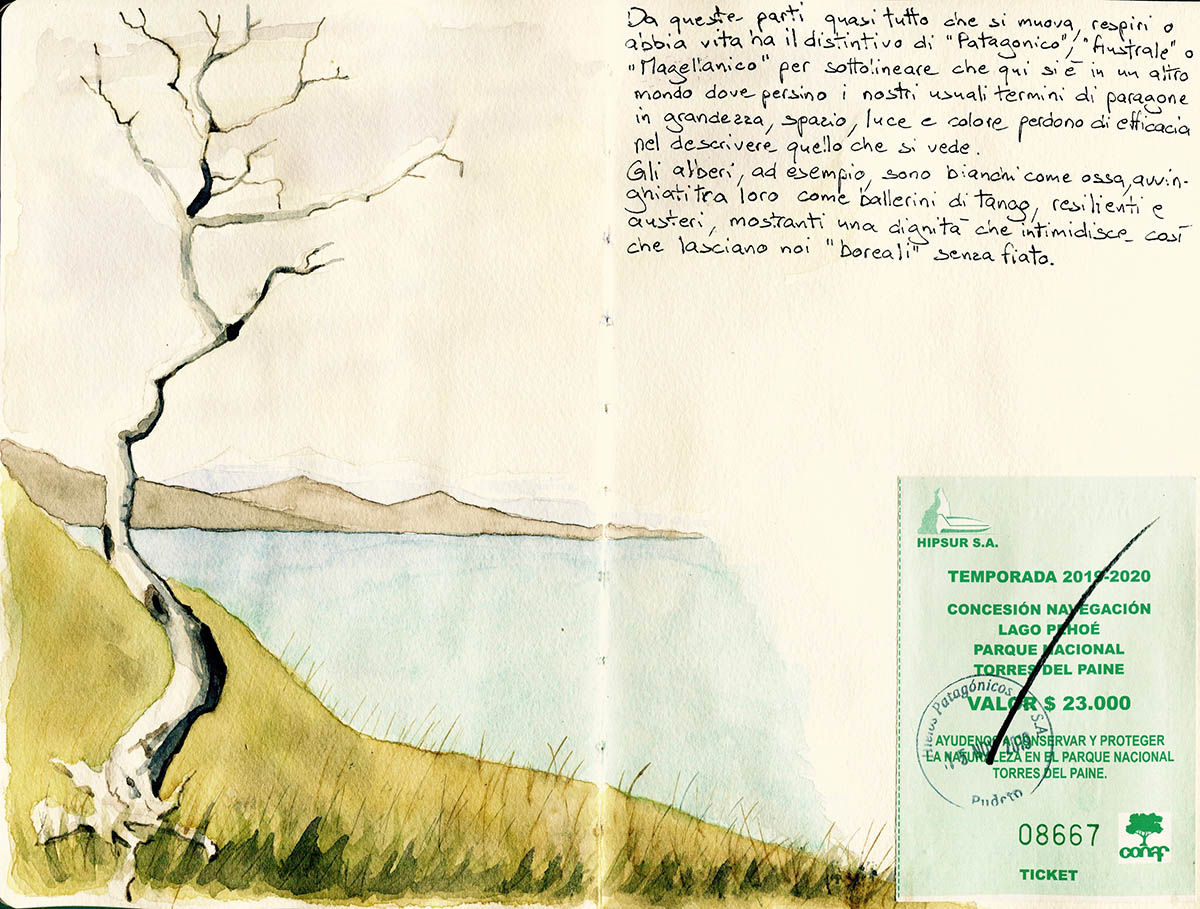 Da queste parti quasi tutto che si muova, respiri o
abbia vita ha il distintivo di "Patagonico", "Australe" o
"Magellanico" per sottolineare che qui si è in un altro
mondo dove persino i nostri usuali termini di paragone
in grandezza, spazio, luce e colore perdono di efficacia
nel descrivere quello che si vede.
Gli alberi, ad esempio, sono bianchi come ossa, avvin-
ghiati tra loro come ballerini di tango, resilienti e
austeri, mostranti una dignità che intimidisce così
che lasciano noi "boreali" senza fiato.
HIPSUR S.A.
TEMPORADA 2019-2020
CONCESIÓN NAVEGACIÓN
LAGO PEHOÉ
PARQUE NACIONAL
TORRES DEL PAINE
VALOR $ 23.000
Hielos Patagónicos S.A.
NOV 2019
Pudeto
AYUDENOS A CONSERVAR Y PROTEGER
LA NATURALEZA EN EL PARQUE NACIONAL
TORRES DEL PAINE.
08667
conaf
TICKET